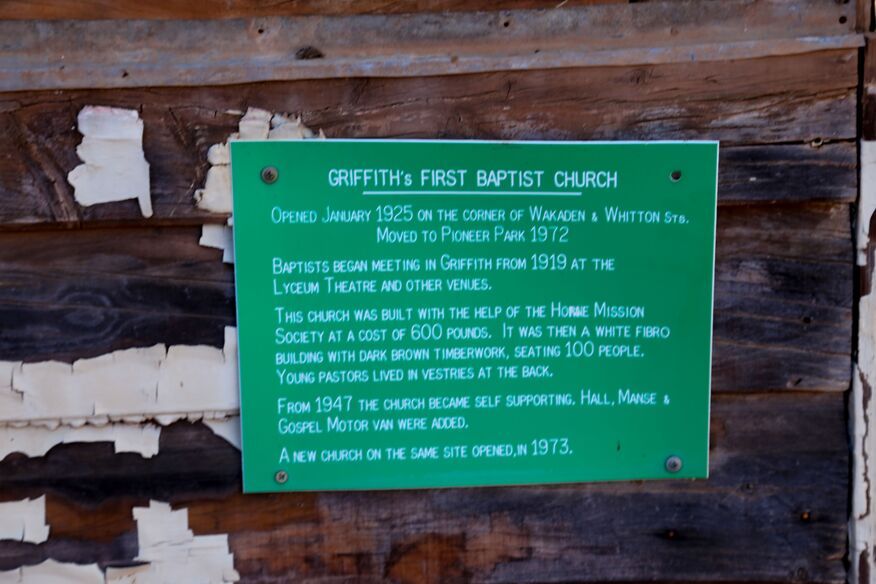 GRIFFITH's FIRST BAPTIST CHURCH
OPENED JANUARY 1925 ON THE CORNER OF WAKADEN & WHITTON STS.
MOVED TO PIONEER PARK 1972
BAPTISTS BEGAN MEETING IN GRIFFITH FROM 1919 AT THE
LYCEUM THEATRE AND OTHER VENUES.
THIS CHURCH WAS BUILT WITH THE HELP OF THE HOME MISSION
SOCIETY AT A COST OF 600 POUNDS. IT WAS THEN A WHITE FIBRO
BUILDING WITH DARK BROWN TIMBERWORK, SEATING 100 PEOPLE.
YOUNG PASTORS LIVED IN VESTRIES AT THE BACK.
FROM 1947 THE CHURCH BECAME SELF SUPPORTING. HALL, MANSE &
GOSPEL MOTOR VAN WERE ADDED.
A NEW CHURCH ON THE SAME SITE OPENED,IN 1973.